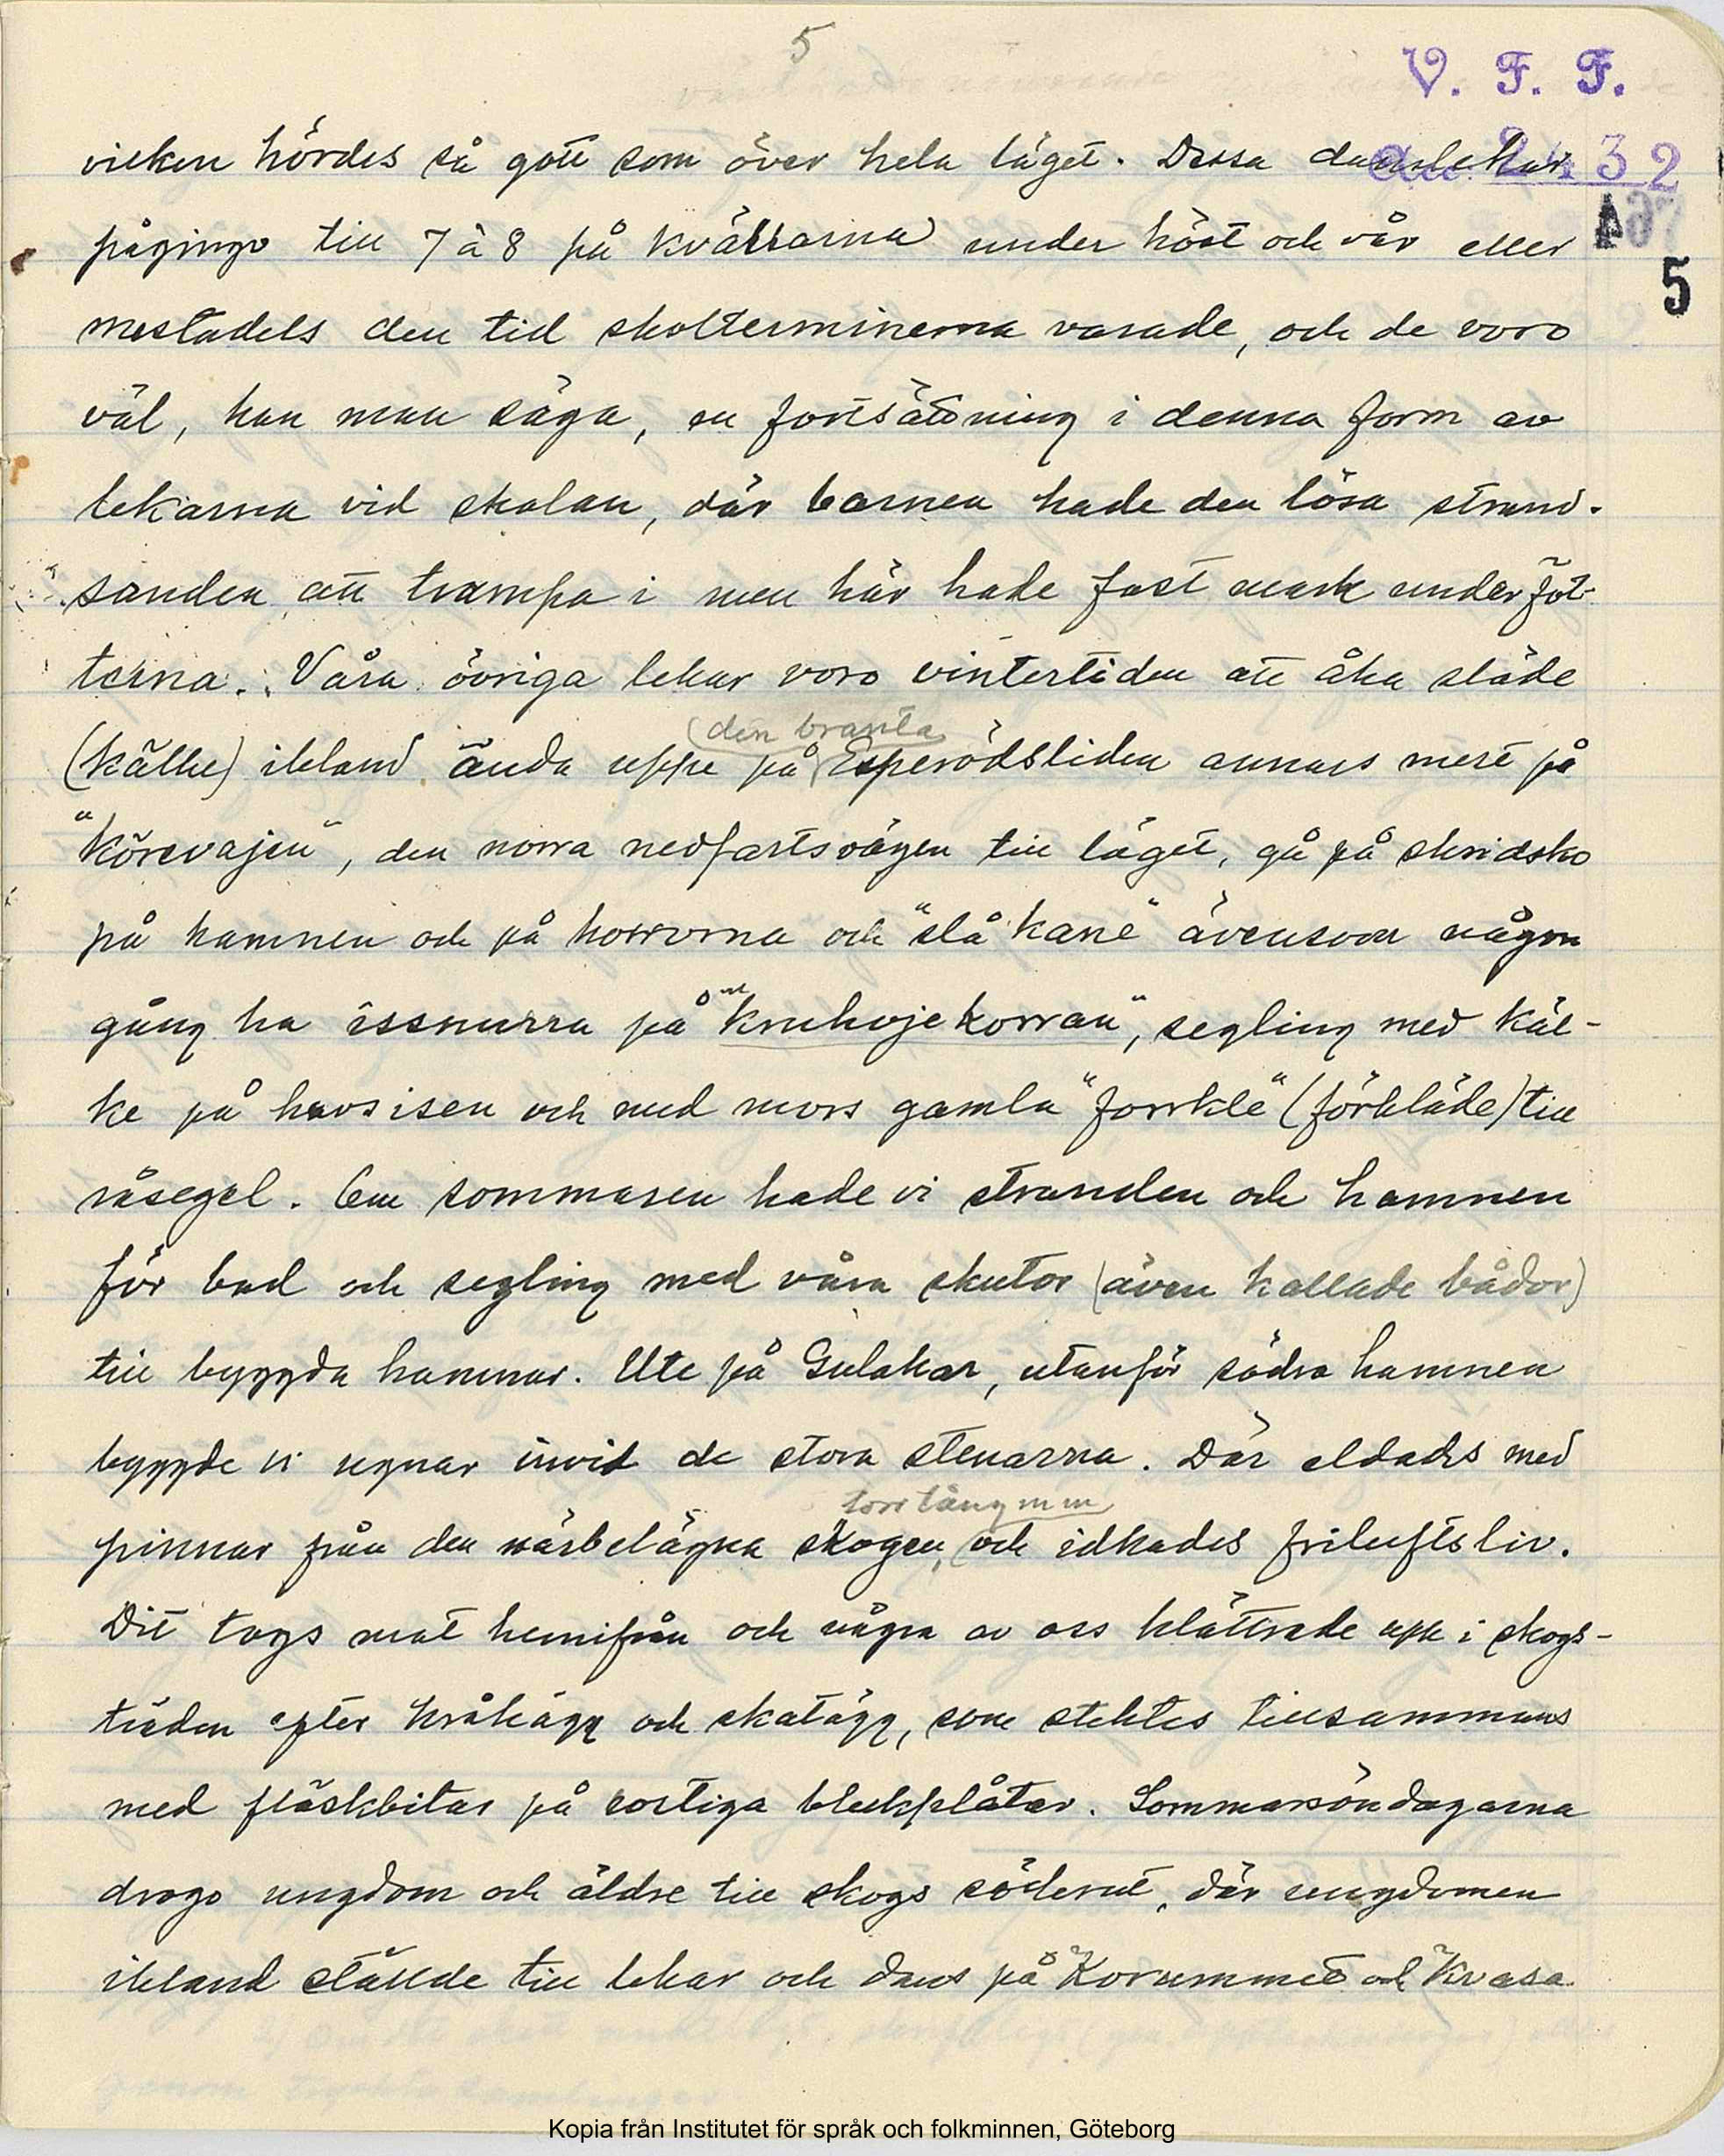 5
V. F. F.
2432
A 97
5
vilken hördes så gott som över hela läget. Dessa danslekar
pågingo till 7 à 8 på kvällarna under höst och vår eller
mestadels den tid skolterminerna varade, och de voro
väl, kan man säga, en fortsättning i denna form av
lekarna vid skolan, där barnen hade den lösa strand-
sanden att trampa i men här hade fast mark under föt-
terna. Våra övriga lekar voro vintertiden att åka släde
(den branta
(kälke) ibland ända uppe på Esperödsliden annars mest på
"körevajen", den norra nedfartsvägen till läget, gå på skridsko
på hamnen och på korrorna och "slå kane" ävensom någon
gång ha issnurra på "kruhojekorran", segling med käl-
ke på havsisen och med mors gamla "forrkle" (förkläde) till
råsegel. Om sommaren hade vi stranden och hamnen
för bad och segling med våra skutor (även kallade bådor)
till byggda hamnar. Ute på Gulakar, utanför södra hamnen
byggde vi ugnar invid de stora stenarna. Där eldades med
torr tång m m
pinnar från den närbelägna skogen, och idkades friluftsliv.
Dit togs mat hemifrån och några av oss klättrade upp i skogs-
träden efter kråkägg och skatägg, som stektes tillsammans
med fläskbitar på rostiga bleckplåtar. Sommarsöndagarna
drogo ungdom och äldre till skogs söderut, där ungdomen
ibland ställde till lekar och dans på Korummet och Kvasa
Kopia från Institutet för språk och folkminnen, Göteborg